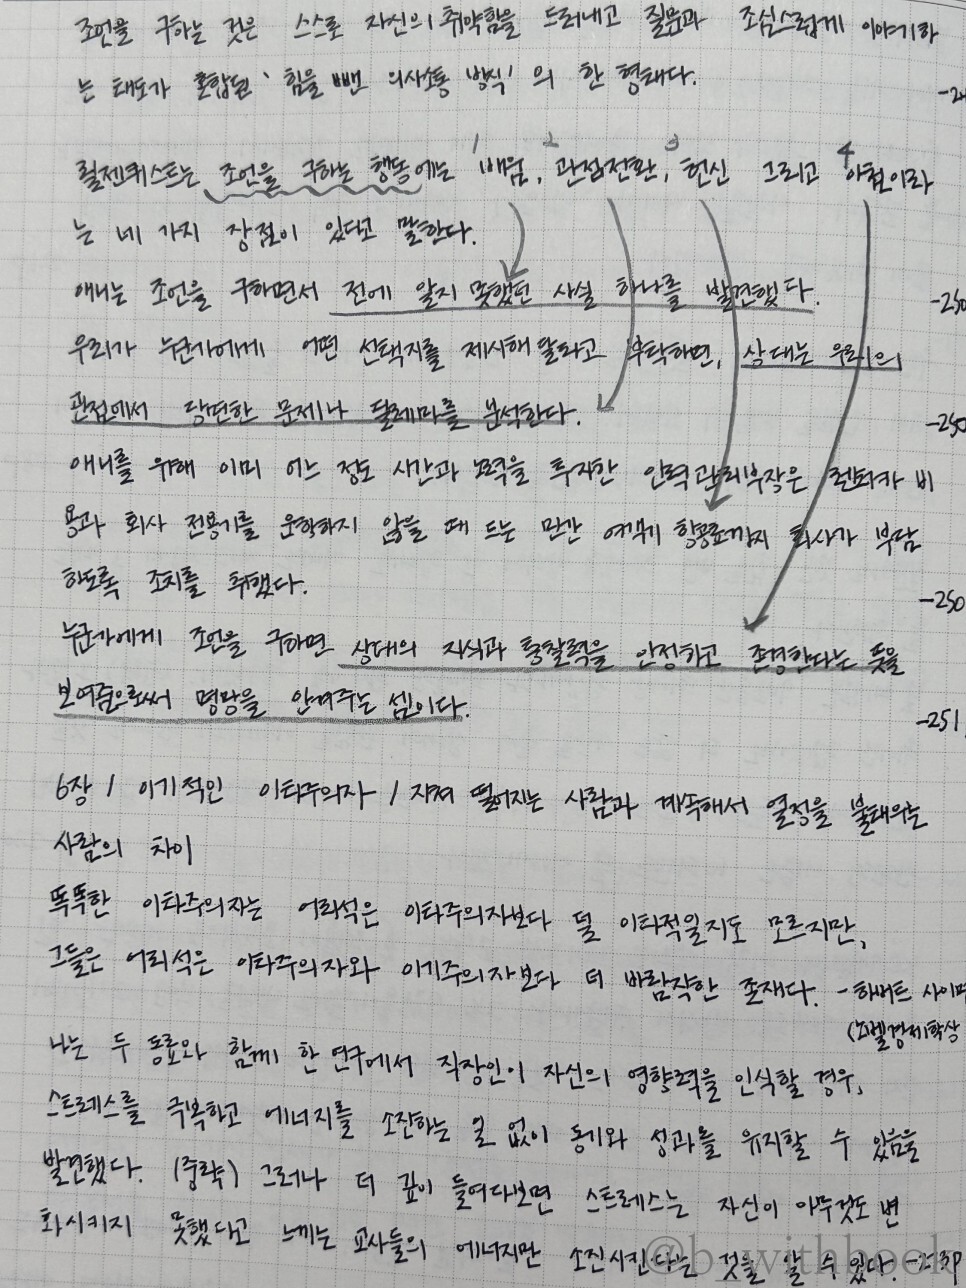 조언을 구하는 것은 스스로 자신의 취약함을 드러내고 질문과 조심스럽게 이야기하
는 태도가 혼합된 '힘을 뺀 의사소통 방식'의 한 형태다.
릴젠퀴스트는 조언을 구하는 행동에는 1 배움, 2 관점전환, 3 헌신 그리고 4 아첨이라
는 네 가지 장점이 있다고 말한다.
애니는 조언을 구하면서 전에 알지 못했던 사실 하나를 발견했다. -250
우리가 누군가에게 어떤 선택지를 제시해 달라고 부탁하면, 상대는 우리의
관점에서 당면한 문제나 딜레마를 분석한다. -250
애니를 위해 이미 어느 정도 시간과 노력을 투자한 인력관리부장은 렌터카 비
용과 회사 전용기를 운항하지 않을 때 드는 민간 여객기 항공료까지 회사가 부담
하도록 조치를 취했다. -250
누군가에게 조언을 구하면 상대의 지식과 통찰력을 인정하고 존경한다는 뜻을
보여줌으로써 명망을 안겨주는 셈이다. -251
6장 / 이기적인 이타주의자 / 지쳐 떨어지는 사람과 계속해서 열정을 불태우는
사람의 차이
똑똑한 이타주의자는 어리석은 이타주의자보다 덜 이타적일지도 모르지만,
그들은 어리석은 이타주의자와 이기주의자보다 더 바람직한 존재다. - 허버트 사이먼
(노벨경제학상
나는 두 동료와 함께 한 연구에서 직장인이 자신의 영향력을 인식할 경우,
스트레스를 극복하고 에너지를 소진하는 일 없이 동기와 성과를 유지할 수 있음을
발견했다. (중략) 그러나 더 깊이 들여다보면 스트레스는 자신이 아무것도 변
화시키지 못했다고 느끼는 교사들의 에너지만 소진시킨다는 것을 알 수 있다